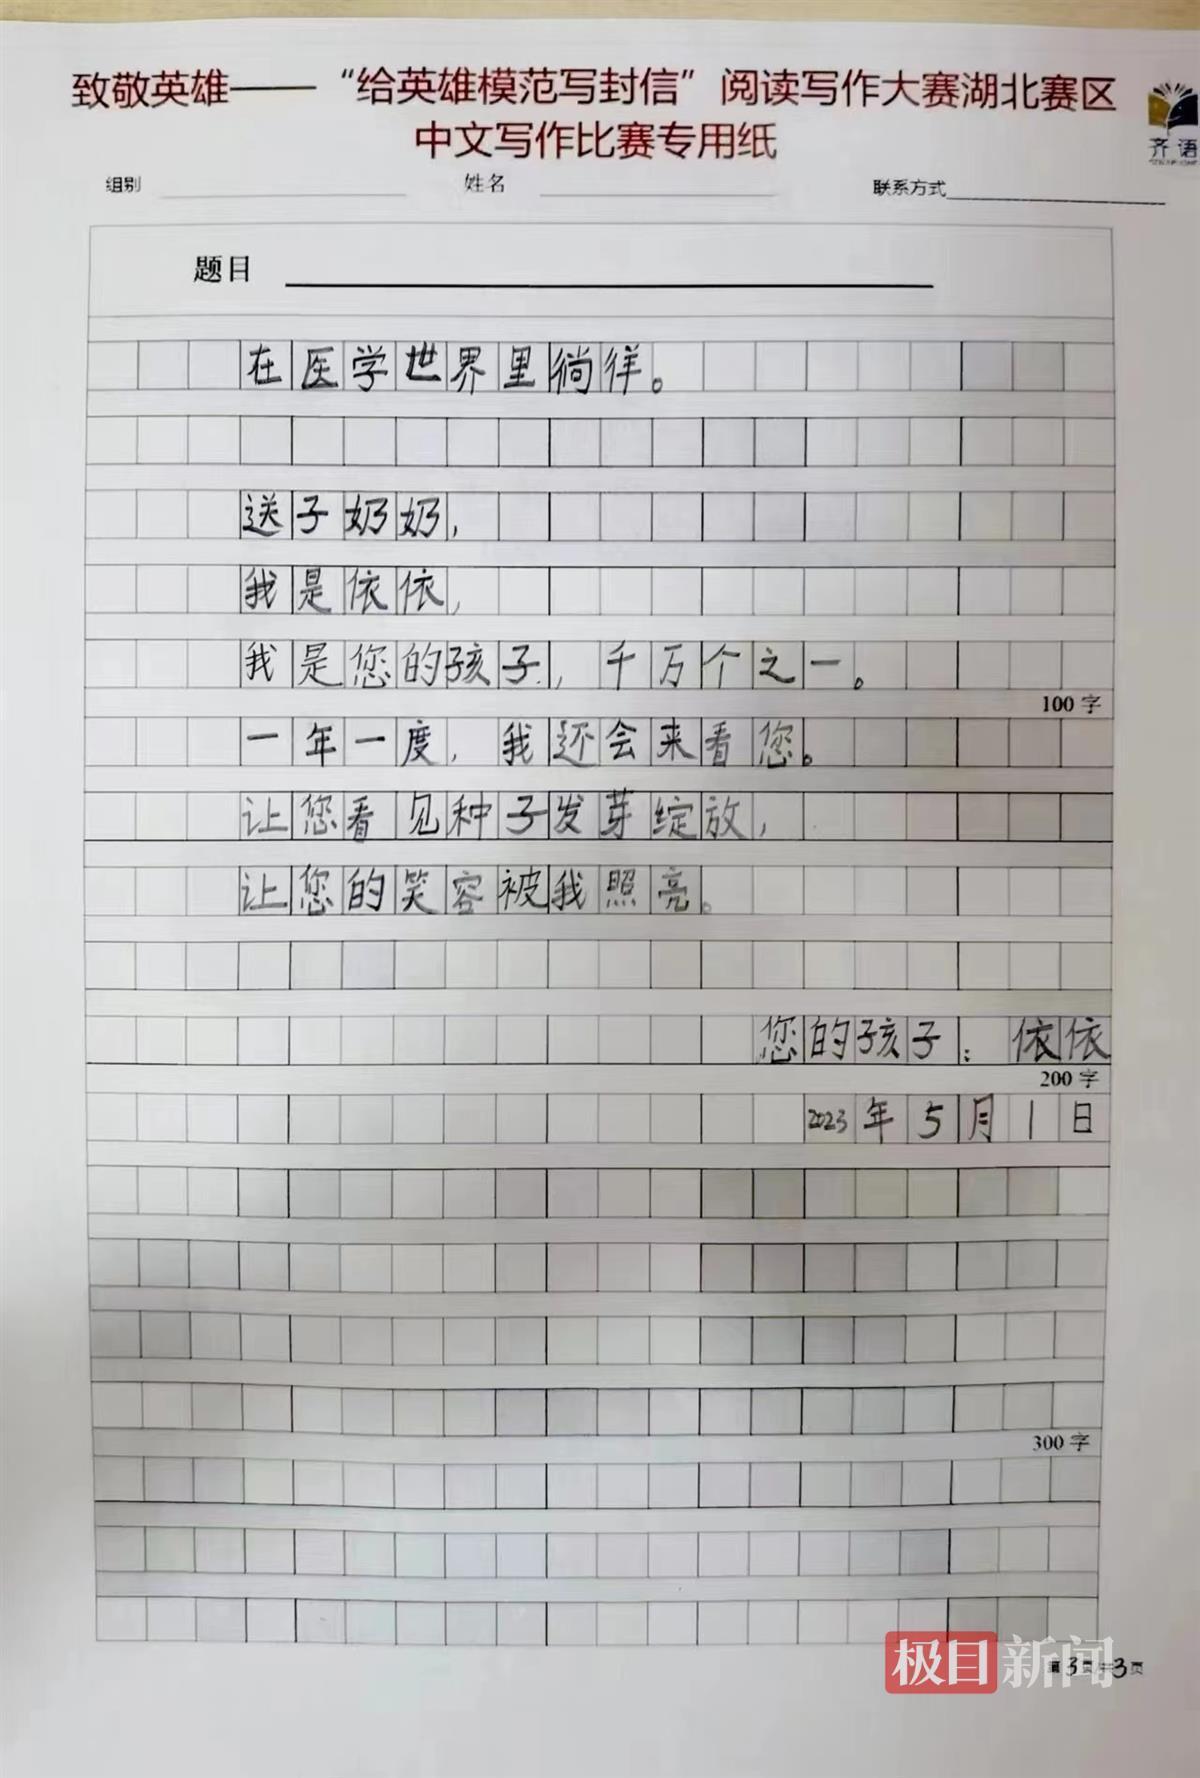 致敬英雄——“给英雄模范写封信”阅读写作大赛湖北赛区
中文写作比赛专用纸
齐语
组别 姓名 联系方式
题目
在医学世界里徜徉。
送子奶奶，
我是依依，
我是您的孩子，千万个之一。
100字
一年一度，我还会来看您。
让您看见种子发芽绽放，
让您的笑容被我照亮。
您的孩子：依依
200字
2023年5月1日
300字
极目新闻
第3页共3页